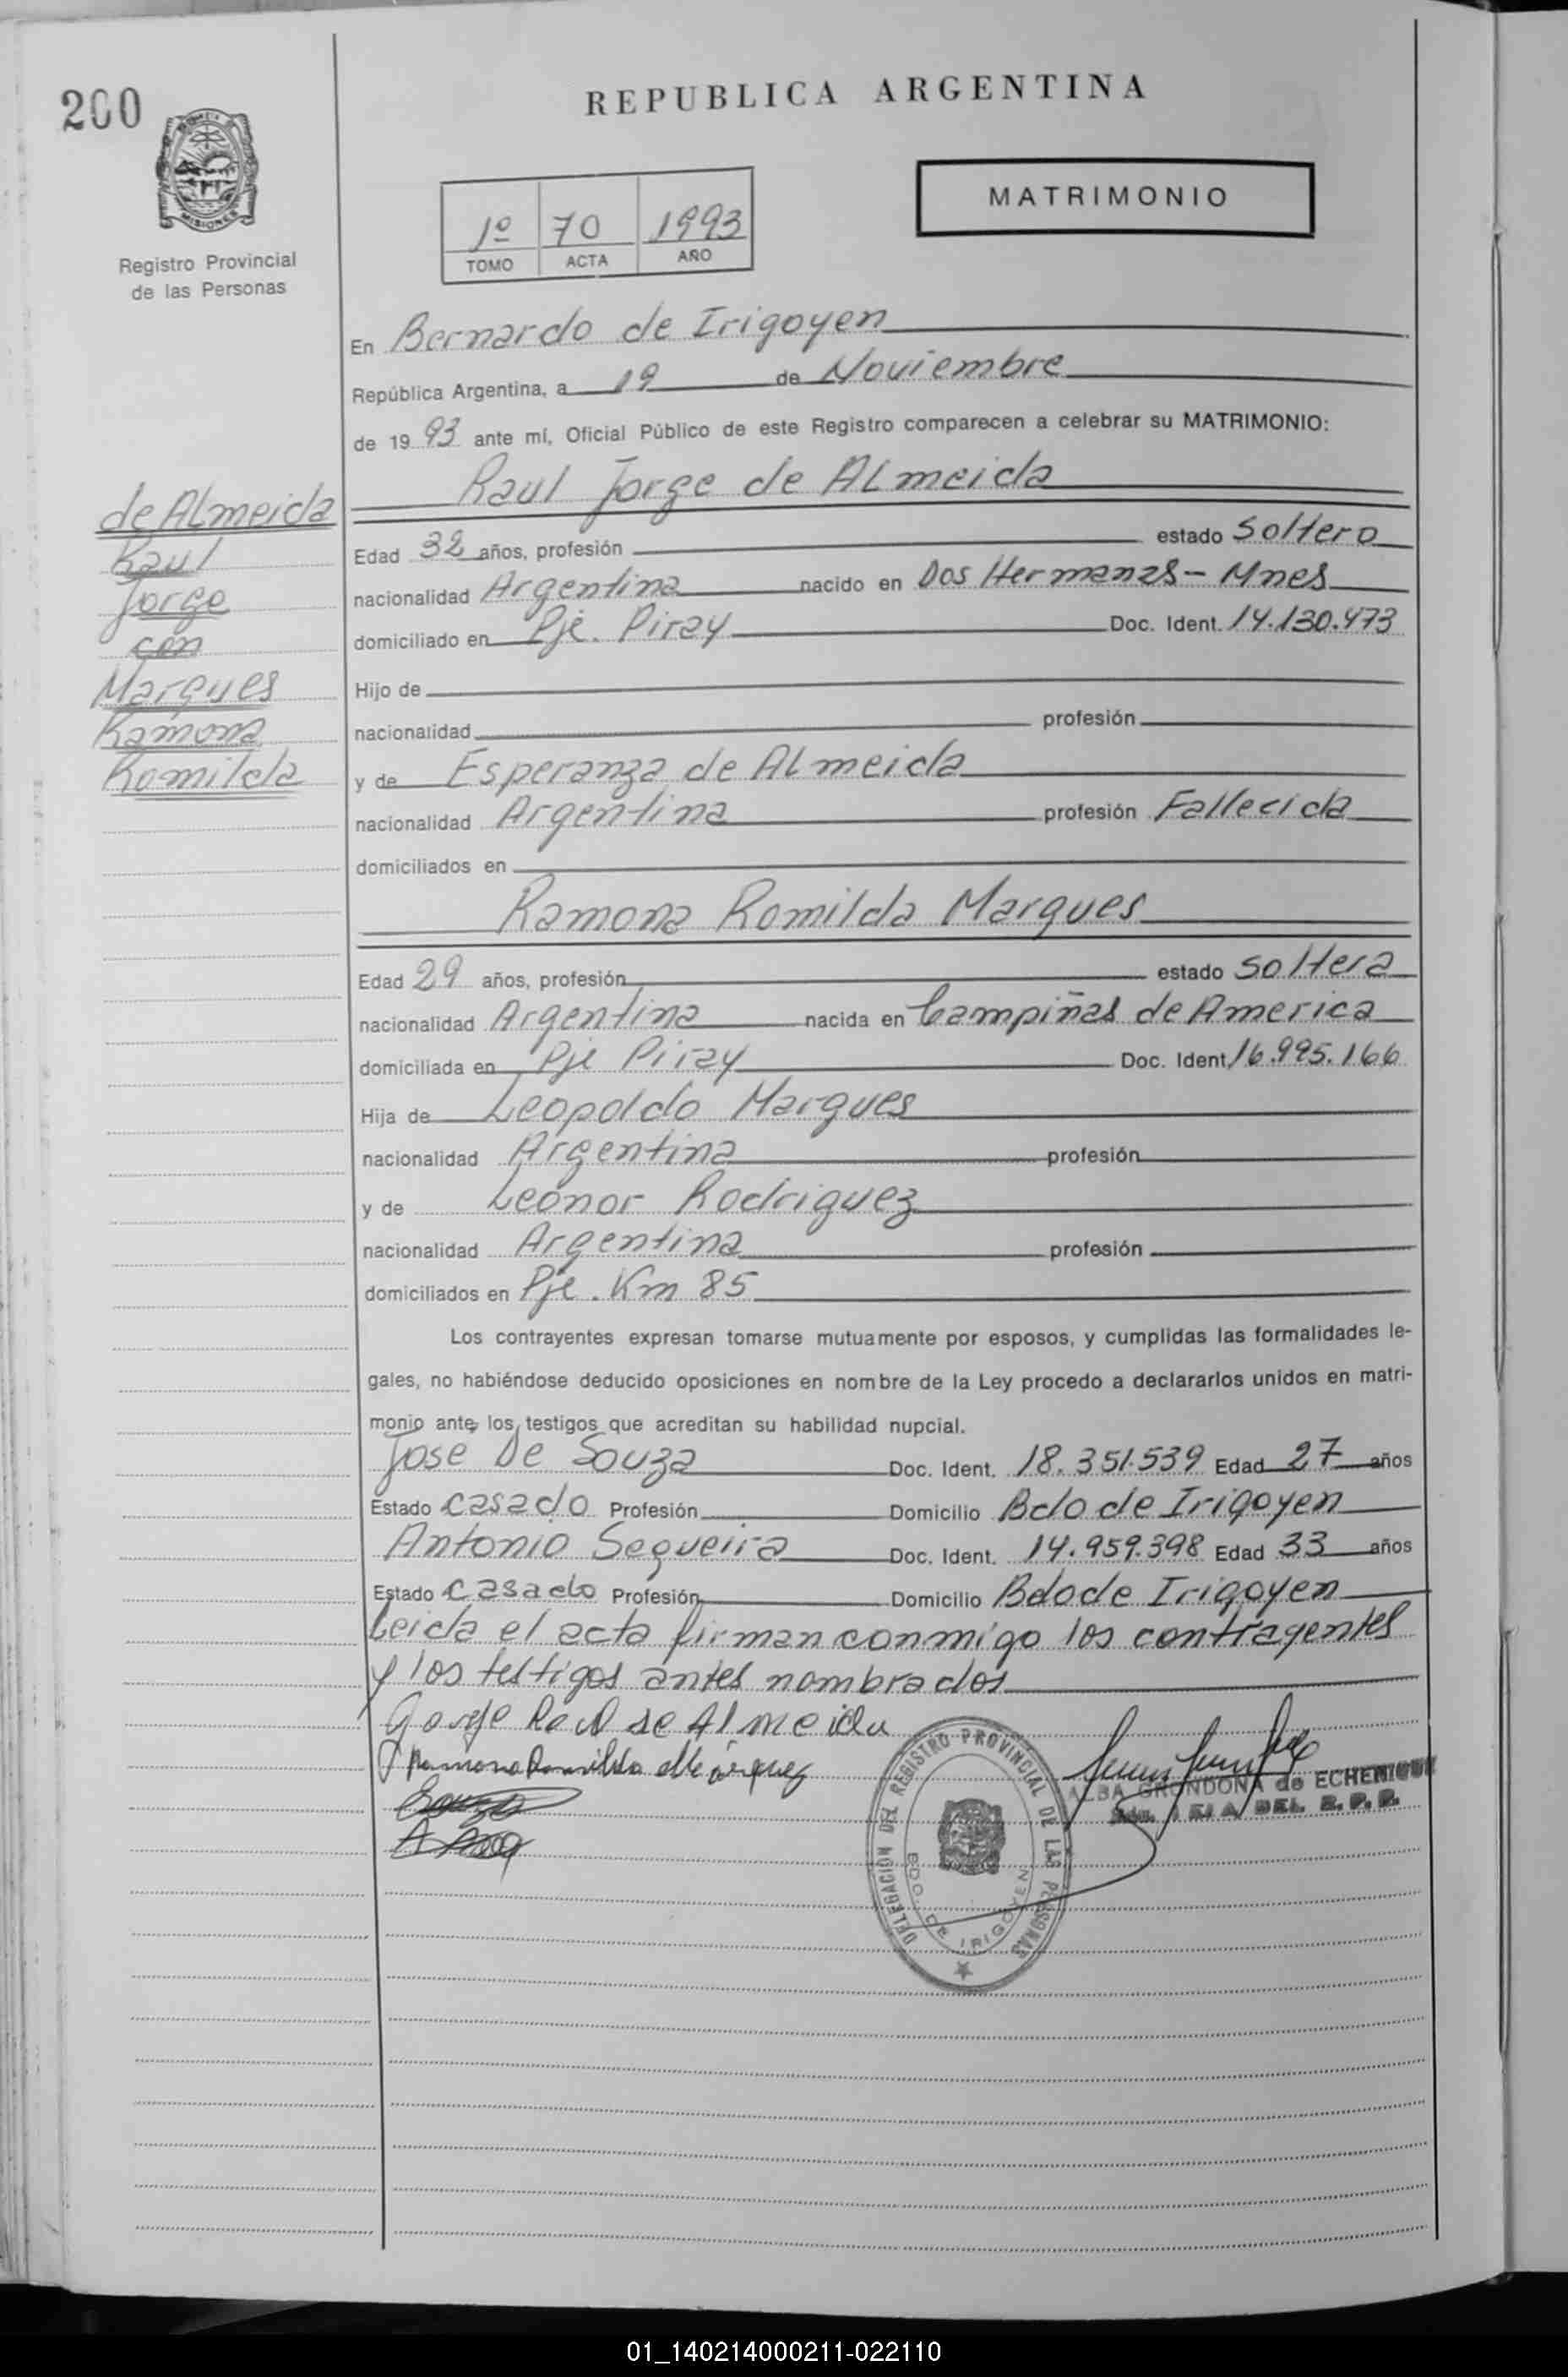 200
REPUBLICA ARGENTINA
MISIONES
Registro Provincial
de las Personas
MATRIMONIO
1º 70 1993
TOMO ACTA AÑO
En Bernardo de Irigoyen
República Argentina, a 19 de Noviembre
de 19 93 ante mí, Oficial Público de este Registro comparecen a celebrar su MATRIMONIO:
Raul Jorge de ALmeida
de ALmeida
Raul
Jorge
con
Marques
Ramona
Romilda
Edad 32 años, profesión estado Soltero
nacionalidad Argentina nacido en Dos Hermanas - Mnes
domiciliado en Pje. Piray Doc. Ident. 14.130.473
Hijo de
nacionalidad profesión
y de Esperanza de ALmeida
nacionalidad Argentina profesión Fallecida
domiciliados en
Ramona Romilda Marques
Edad 29 años, profesión estado soltera
nacionalidad Argentina nacida en Campiñas de America
domiciliada en Pje Piray Doc. Ident. 16.995.166
Hija de Leopoldo Marques
nacionalidad Argentina profesión
y de Leonor Rodriguez
nacionalidad Argentina profesión
domiciliados en Pje. Km 85
Los contrayentes expresan tomarse mutuamente por esposos, y cumplidas las formalidades le-
gales, no habiéndose deducido oposiciones en nombre de la Ley procedo a declararlos unidos en matri-
monio ante los testigos que acreditan su habilidad nupcial.
Jose De Souza Doc. Ident. 18.351.539 Edad 27 años
Estado casado Profesión Domicilio Bdo de Irigoyen
Antonio Sequeira Doc. Ident. 14.959.398 Edad 33 años
Estado casado Profesión Domicilio Bdo de Irigoyen
Leida el acta firman conmigo los contrayentes
y los testigos antes nombrados
Gorje Raul de Almeida
Ramona Romilda Marques
DELEGACIÓN DEL REGISTRO PROVINCIAL DE LAS PERSONAS
BDO. DE IRIGOYEN
ALBA GRONDONA de ECHENIQUE
DEL R. P. P.
01_140214000211-022110